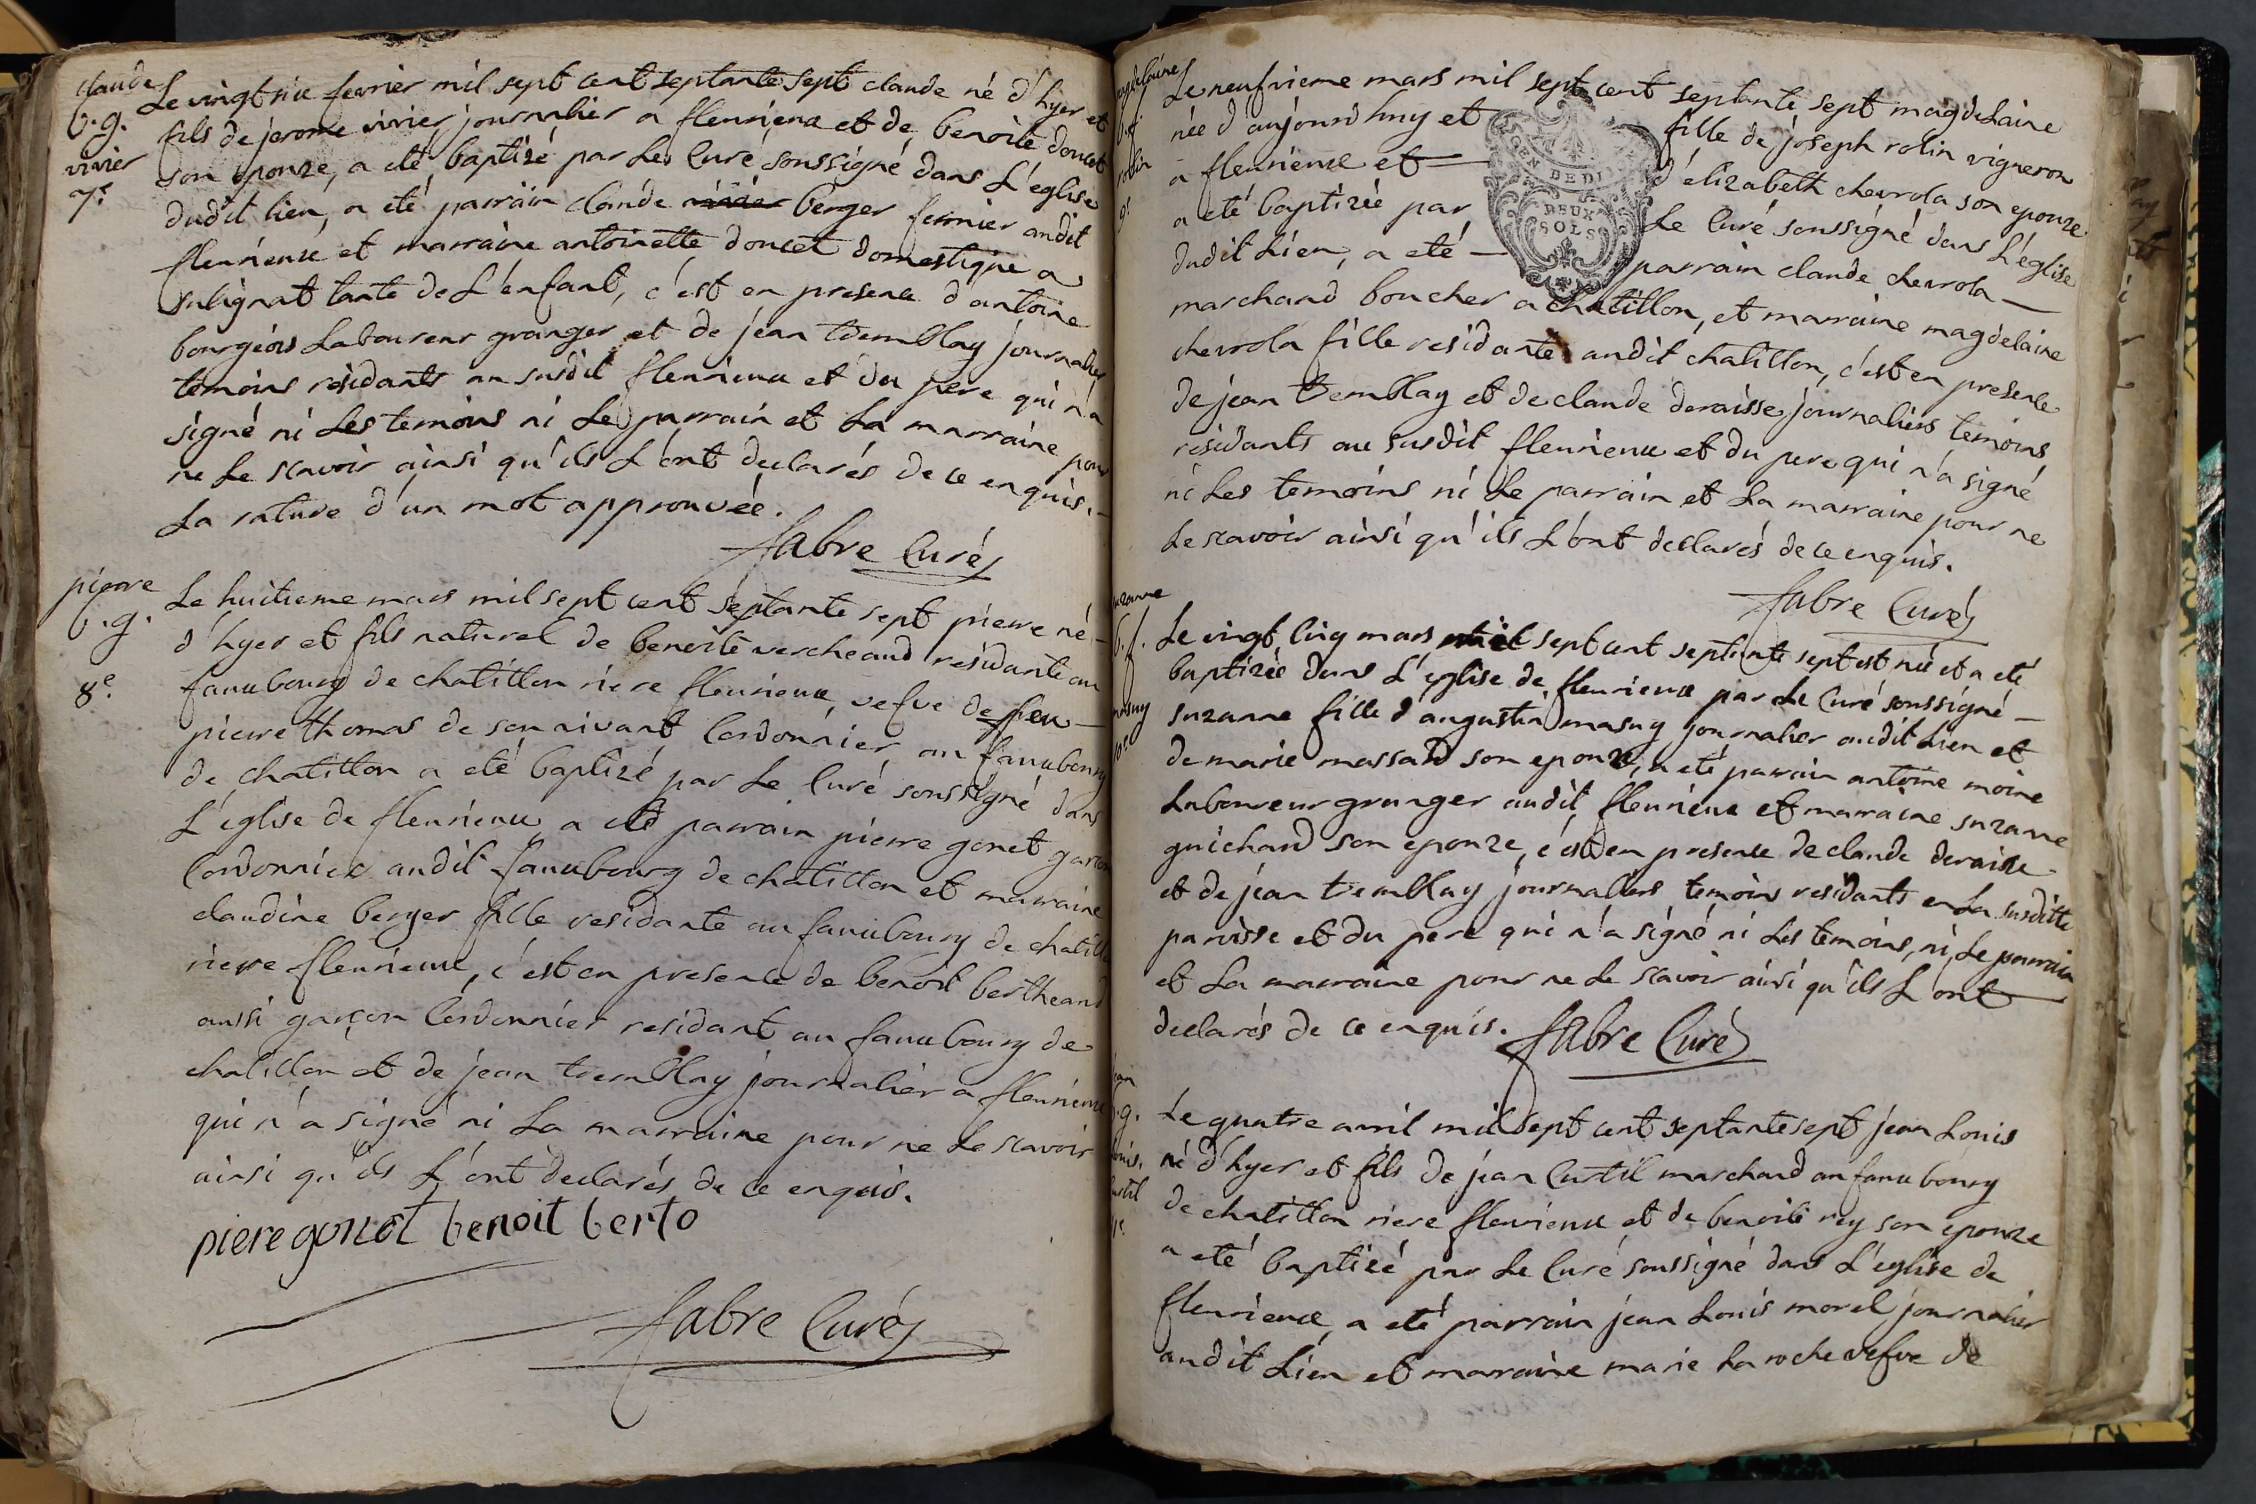 claude
b. g.
vivier
7e.
Le vingt six fevrier mil sept cent septante sept claude né d'hyer et
fils de jerome vivier journalier a fleurieux et de benoite doucet
son epouze, a eté baptizé par Le Curé soussigné dans L'eglise
dudit lieu, a eté parrain claude vivier berger fermier audit
fleurieux et marraine antoinette doucet domestique a
sulignat tante de L'enfant, c'est en presence d'antoine
bourgeois Laboureur granger et de jean tremblay journalier
temoins residants au susdit fleurieux et du pere qui n'a
signé ni Les temoins ni Le parrain et La marraine pour
ne Le scavoir ainsi qu'ils L'ont declarés de ce enquis.
La rature d'un mot approuvée.
fabre Curé
pierre
b. g.
8e.
Le huitieme mars mil sept cent septante sept pierre né
d'hyer et fils naturel de benoite vercheaud residante au
fauxbourg de chatillon riere fleurieux, vefve de feu
pierre thomas de son vivant Cordonnier au fauxbourg
de chatillon a eté baptizé par Le Curé soussigné dans
L'église de fleurieux, a eté parrain pierre gonet garcon
Cordonnier audit fauxbourg de chatillon et marraine
claudine berger fille residante au fauxbourg de chatillon
riere fleurieux, c'est en presence de benoit bertheaud
aussi garçon Cordonnier residant au fauxbourg de
chatillon et de jean tremblay journalier a fleurieux
qui n'a signé ni La marraine pour ne Le scavoir
ainsi qu'ils L'ont declarés de ce enquis.
piere gonet benoit berto
fabre Curé
magdelaine
b. f.
robin
9e.
Le neufvieme mars mil sept cent septante sept magdelaine
née d'aujourd'huy et fille de joseph robin vigneron
a fleurieux et d'elizabeth chevrola son epouze
a eté baptizée par Le Curé soussigné dans L'église
dudit Lieu, a eté parrain claude chevrola
marchand boucher a chatillon, et marraine magdelaine
chevrola fille residante audit chatillon, c'est en presence
de jean tremblay et de claude deraisse journaliers temoins
residants au susdit fleurieux et du pere qui n'a signé
ni Les temoins ni Le parrain et La marraine pour ne
Le scavoir ainsi qu'ils L'ont declarés de ce enquis.
fabre Curé
GEN DE DI
DEUX
SOLS
suzanne
b. f.
masuy
10e.
Le vingt Cinq mars mil sept cent septante sept est née et a eté
baptizée dans L'église de fleurieux par Le Curé soussigné
suzanne fille d'augustin masuy journalier audit Lieu et
de marie massard son epouze, a eté parrain antoine moine
Laboureur granger audit fleurieux et marraine suzanne
guichard son epouze, c'est en presence de claude deraisse
et de jean tremblay journaliers temoins residants en La susditte
paroisse et du pere qui n'a signé ni Les temoins, ni Le parrain
et La marraine pour ne Le scavoir ainsi qu'ils L'ont
declarés de ce enquis. fabre Curé
jean
b. g.
Louis.
Curtil
Le quatre avril mil sept cent septante sept jean Louis
né d'hyer et fils de jean Curtil marchand au fauxbourg
de chatillon riere fleurieux et de benoite rey son epouze
a eté baptizé par Le Curé soussigné dans L'église de
fleurieux, a eté parrain jean Louis morel journalier
audit Lieu et marraine marie Laroche vefve de